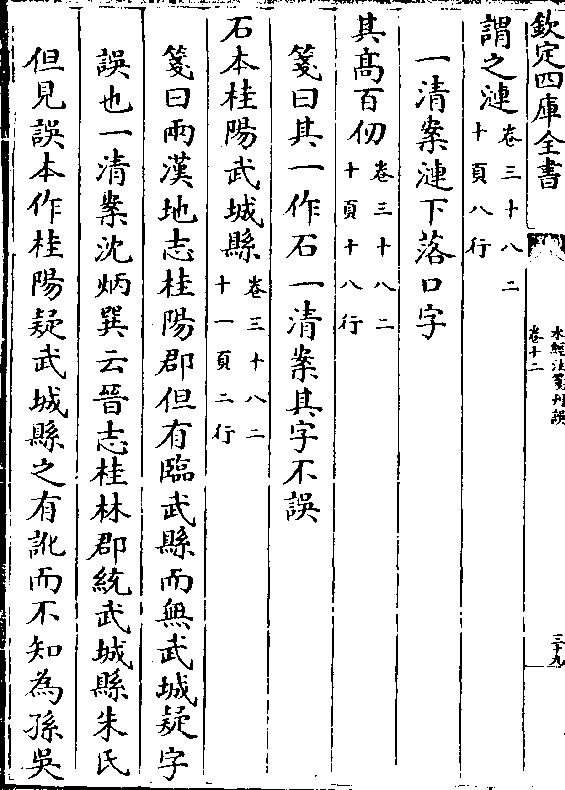 欽定四庫全書
水經注箋刊誤
卷十二
三十九
謂之漣卷三十八二十頁八行
一清案漣下落口字
其高百仞卷三十八二十頁十八行
箋曰其一作石一清案其字不誤
石本桂陽武城縣卷三十八二十一頁二行
箋曰兩漢地志桂陽郡但有臨武縣而無武城疑字
誤也一清案沈炳巽云晉志桂林郡統武城縣朱氏
但見誤本作桂陽疑武城縣之有訛而不知為孫吳